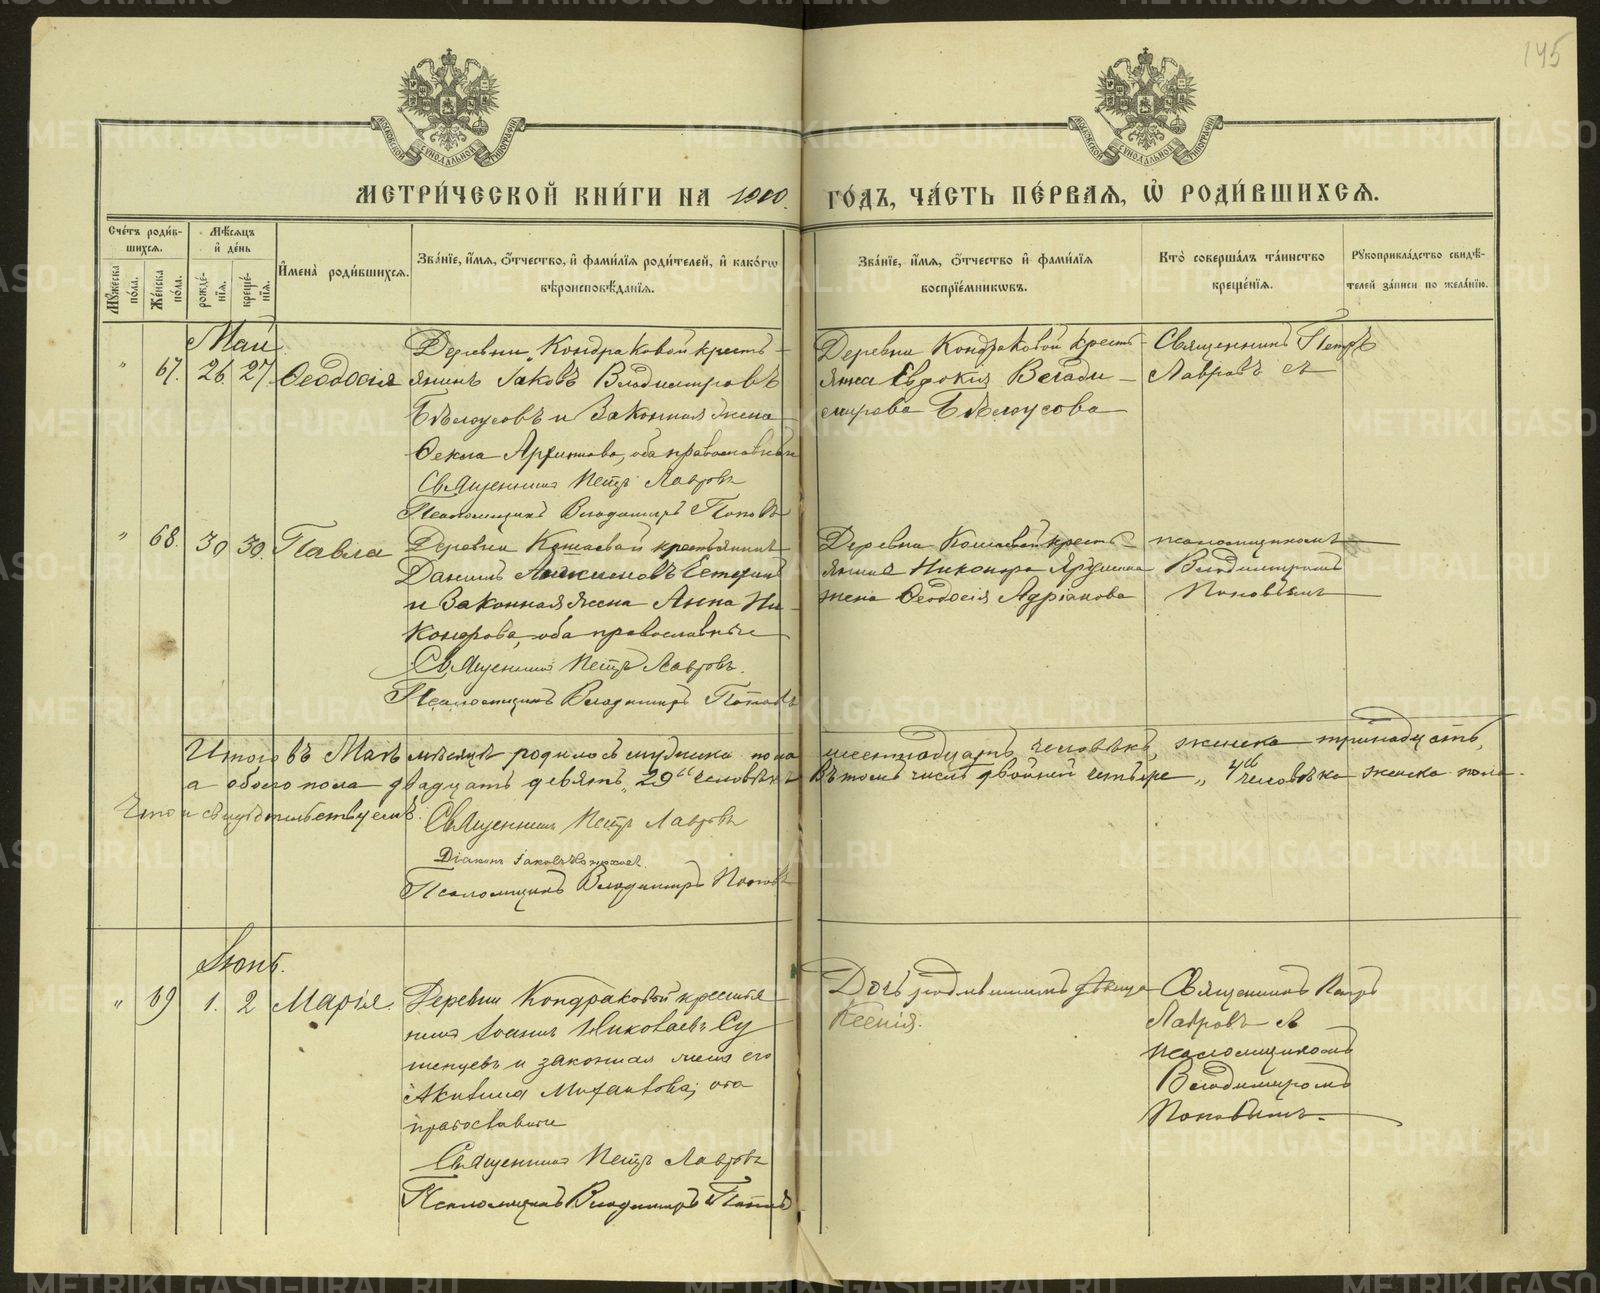 145
МОСКОВСКОЙ СѴНОДАЛЬНОЙ ТИПОГРАФІИ
МОСКОВСКОЙ СѴНОДАЛЬНОЙ ТИПОГРАФІИ
МЕТРИ́ЧЕСКОЙ КНИ́ГИ НА 1910. ГО́ДЪ, ЧА́СТЬ ПЕ́РВАЯ, Ѡ РОДИ́ВШИХСЯ.
Сче́тъ роди́вшихся.
Му́жеска по́ла.
Же́нска по́ла.
Мѣ́сяцъ и де́нь
рожде́нія.
креще́нія.
Имена̀ роди́вшихся.
Зва́ніе, и́мя, о́тчество, и фами́лія роди́телей, и како́гѡ вѣроисповѣ́данія.
Зва́ніе, и́мя, о́тчество и фами́лія воспріе́мниковъ.
Кто̀ соверша́лъ та́инство креще́нія.
Рукоприкла́дство свидѣ́телей за́писи по жела́нію.
Май
" 67. 26. 27. Ѳеодосія
Деревни Кондраковой кресть-
янинъ Іаковъ Владимировъ
Бѣлоусовъ и законная жена
Ѳекла, оба православные
Священникъ Петръ Лавровъ
Псаломщикъ Владимиръ Поповъ
Деревни Кондраковой кресть-
янка Евдокия Влади-
мирова Бѣлоусова
Священникъ Петръ
Лавровъ съ
" 68. 30 30. Павла
Деревни крестьянинъ
Даніилъ
и законная жена Анна Ни-
кандрова, оба православные
Священникъ Петръ Лавровъ.
Псаломщикъ Владимиръ Поповъ
Деревни кресть-
янина Никанора
жена Ѳеодосія Адріанова
псаломщикомъ
Владимиромъ
Поповымъ
Итого въ Маѣ мѣсяцѣ родилось мужска пола шестнадцать человѣкъ, женска тринадцать,
а обоего пола двадцать девять „29“ человѣкъ въ томъ числѣ двойней четыре „4“ человѣка женска пола.
Что и свидѣтельствуемъ:
Священникъ Петръ Лавровъ
Діаконъ Іаковъ
Псаломщикъ Владимиръ Поповъ
Іюнь.
" 69 1. 2 Марія.
Деревни Кондраковой крестья
нинъ Іоаннъ Николаевъ Су
и законная жена его
Акилина Михаилова, оба
православные
Священникъ Петръ Лавровъ
Псаломщикъ Владимиръ Поповъ
Дочь дѣвица
Ксенія.
Священникъ Петръ
Лавровъ съ
псаломщикомъ
Владимиромъ
Поповымъ.
METRIKI.GASO-URAL.RU